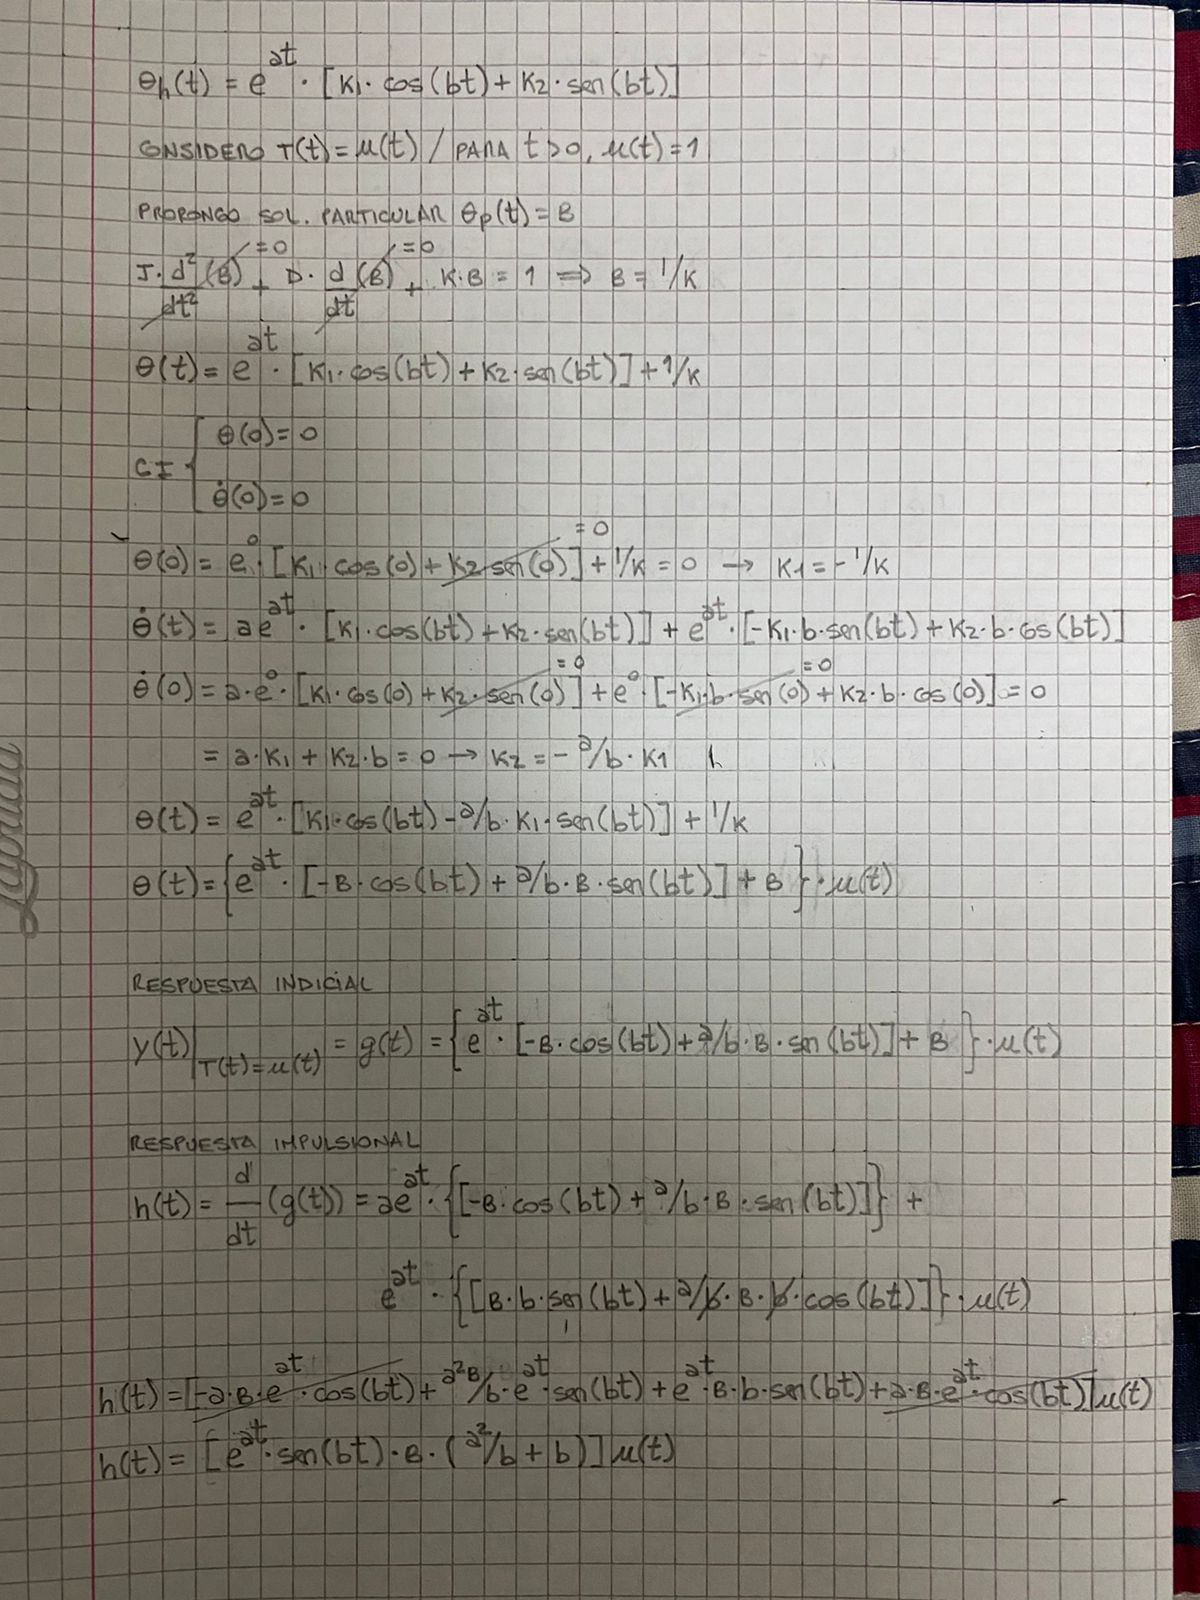 θh(t) = e^at · [K1· cos(bt) + K2 · sen(bt)]
CONSIDERO T(t) = μ(t) / PARA t>0, μ(t) = 1
PROPONGO SOL. PARTICULAR θp(t) = B
J· d²/dt² (B) =0 + D· d/dt (B) =0 + K·B = 1 ⟹ B = 1/K
θ(t) = e^at · [K1· cos(bt) + K2· sen(bt)] + 1/K
CI { θ(0) = 0
θ̇(0) = 0
θ(0) = e^0 · [K1 · cos(0) + K2 sen(0)] =0 + 1/K = 0 → K1 = -1/K
θ̇(t) = ae^at · [K1· cos(bt) + K2· sen(bt)] + e^at · [-K1· b· sen(bt) + K2· b· cos(bt)]
θ̇(0) = a· e^0 · [K1· cos(0) + K2· sen(0)] =0 + e^0 · [-K1·b· sen(0) =0 + K2· b· cos(0)] = 0
= a·K1 + K2·b = 0 → K2 = -a/b· K1
θ(t) = e^at · [K1·cos(bt) - a/b· K1· sen(bt)] + 1/K
θ(t) = {e^at · [-B· cos(bt) + a/b· B· sen(bt)] + B} · μ(t)
RESPUESTA INDICIAL
y(t)|T(t)=μ(t) = g(t) = {e^at · [-B· cos(bt) + a/b· B· sen(bt)] + B} · μ(t)
RESPUESTA IMPULSIONAL
h(t) = d/dt (g(t)) = ae^at · {[-B· cos(bt) + a/b· B· sen(bt)]} +
e^at · {[B· b· sen(bt) + a/b· B· b· cos(bt)]} · μ(t)
h(t) = [-a·B·e^at · cos(bt) + a²B/b· e^at · sen(bt) + e^at · B· b· sen(bt) + a·B·e^at · cos(bt)] μ(t)
h(t) = [e^at · sen(bt)· B· (a²/b + b)] μ(t)